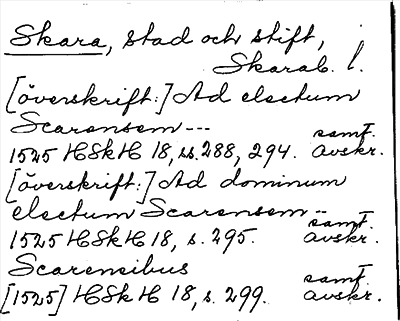 Skara, stad och stift,
Skarab. l.
[överskrift:] Ad electum
Scarensem ---
1525 HSkH 18, ss. 288, 294. samt. avskr.
[överskrift:] Ad dominum
electum Scarensem --
1525 HSkH 18, s. 295. samt. avskr.
Scarensibus
[1525] HSkH 18, s. 299. samt. avskr.